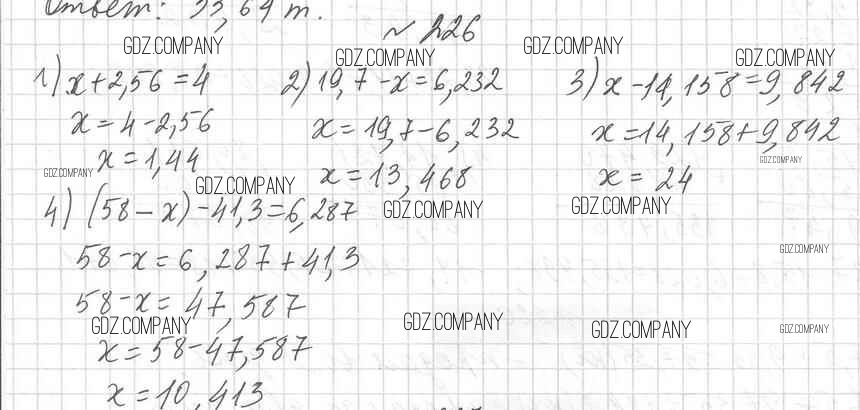 Ответ: 53,64 т.
№ 226
1) x+2,56=4
x=4-2,56
x=1,44
2) 19,7-x=6,232
x=19,7-6,232
x=13,468
3) x-14,158=9,842
x=14,158+9,842
x=24
4) (58-x)-41,3=6,287
58-x=6,287+41,3
58-x=47,587
x=58-47,587
x=10,413
GDZ.COMPANY
GDZ.COMPANY
GDZ.COMPANY
GDZ.COMPANY
GDZ.COMPANY
GDZ.COMPANY
GDZ.COMPANY
GDZ.COMPANY
GDZ.COMPANY
GDZ.COMPANY
GDZ.COMPANY
GDZ.COMPANY
GDZ.COMPANY
GDZ.COMPANY